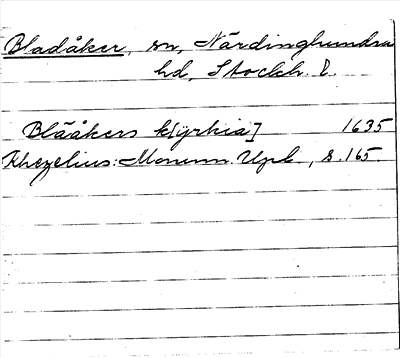 Bladåker, sn, Närdinghundra
hd, Stockh. l.
Blååkers k[yrkia] 1635
Rhezelius: Monum. Upl., s. 165.